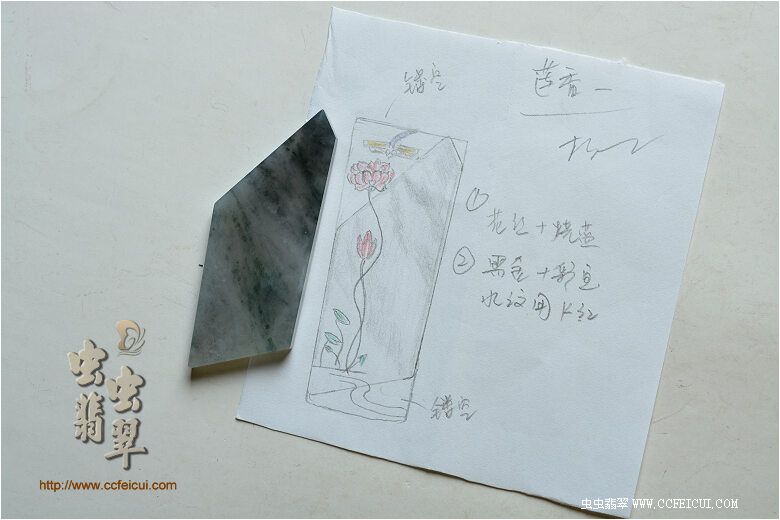 镂空
①
花丝+烧蓝
② 黑金+彩宝
水纹用K红
镂空
虫虫翡翠
http://www.ccfeicui.com
虫虫翡翠 WWW.CCFEICUI.COM